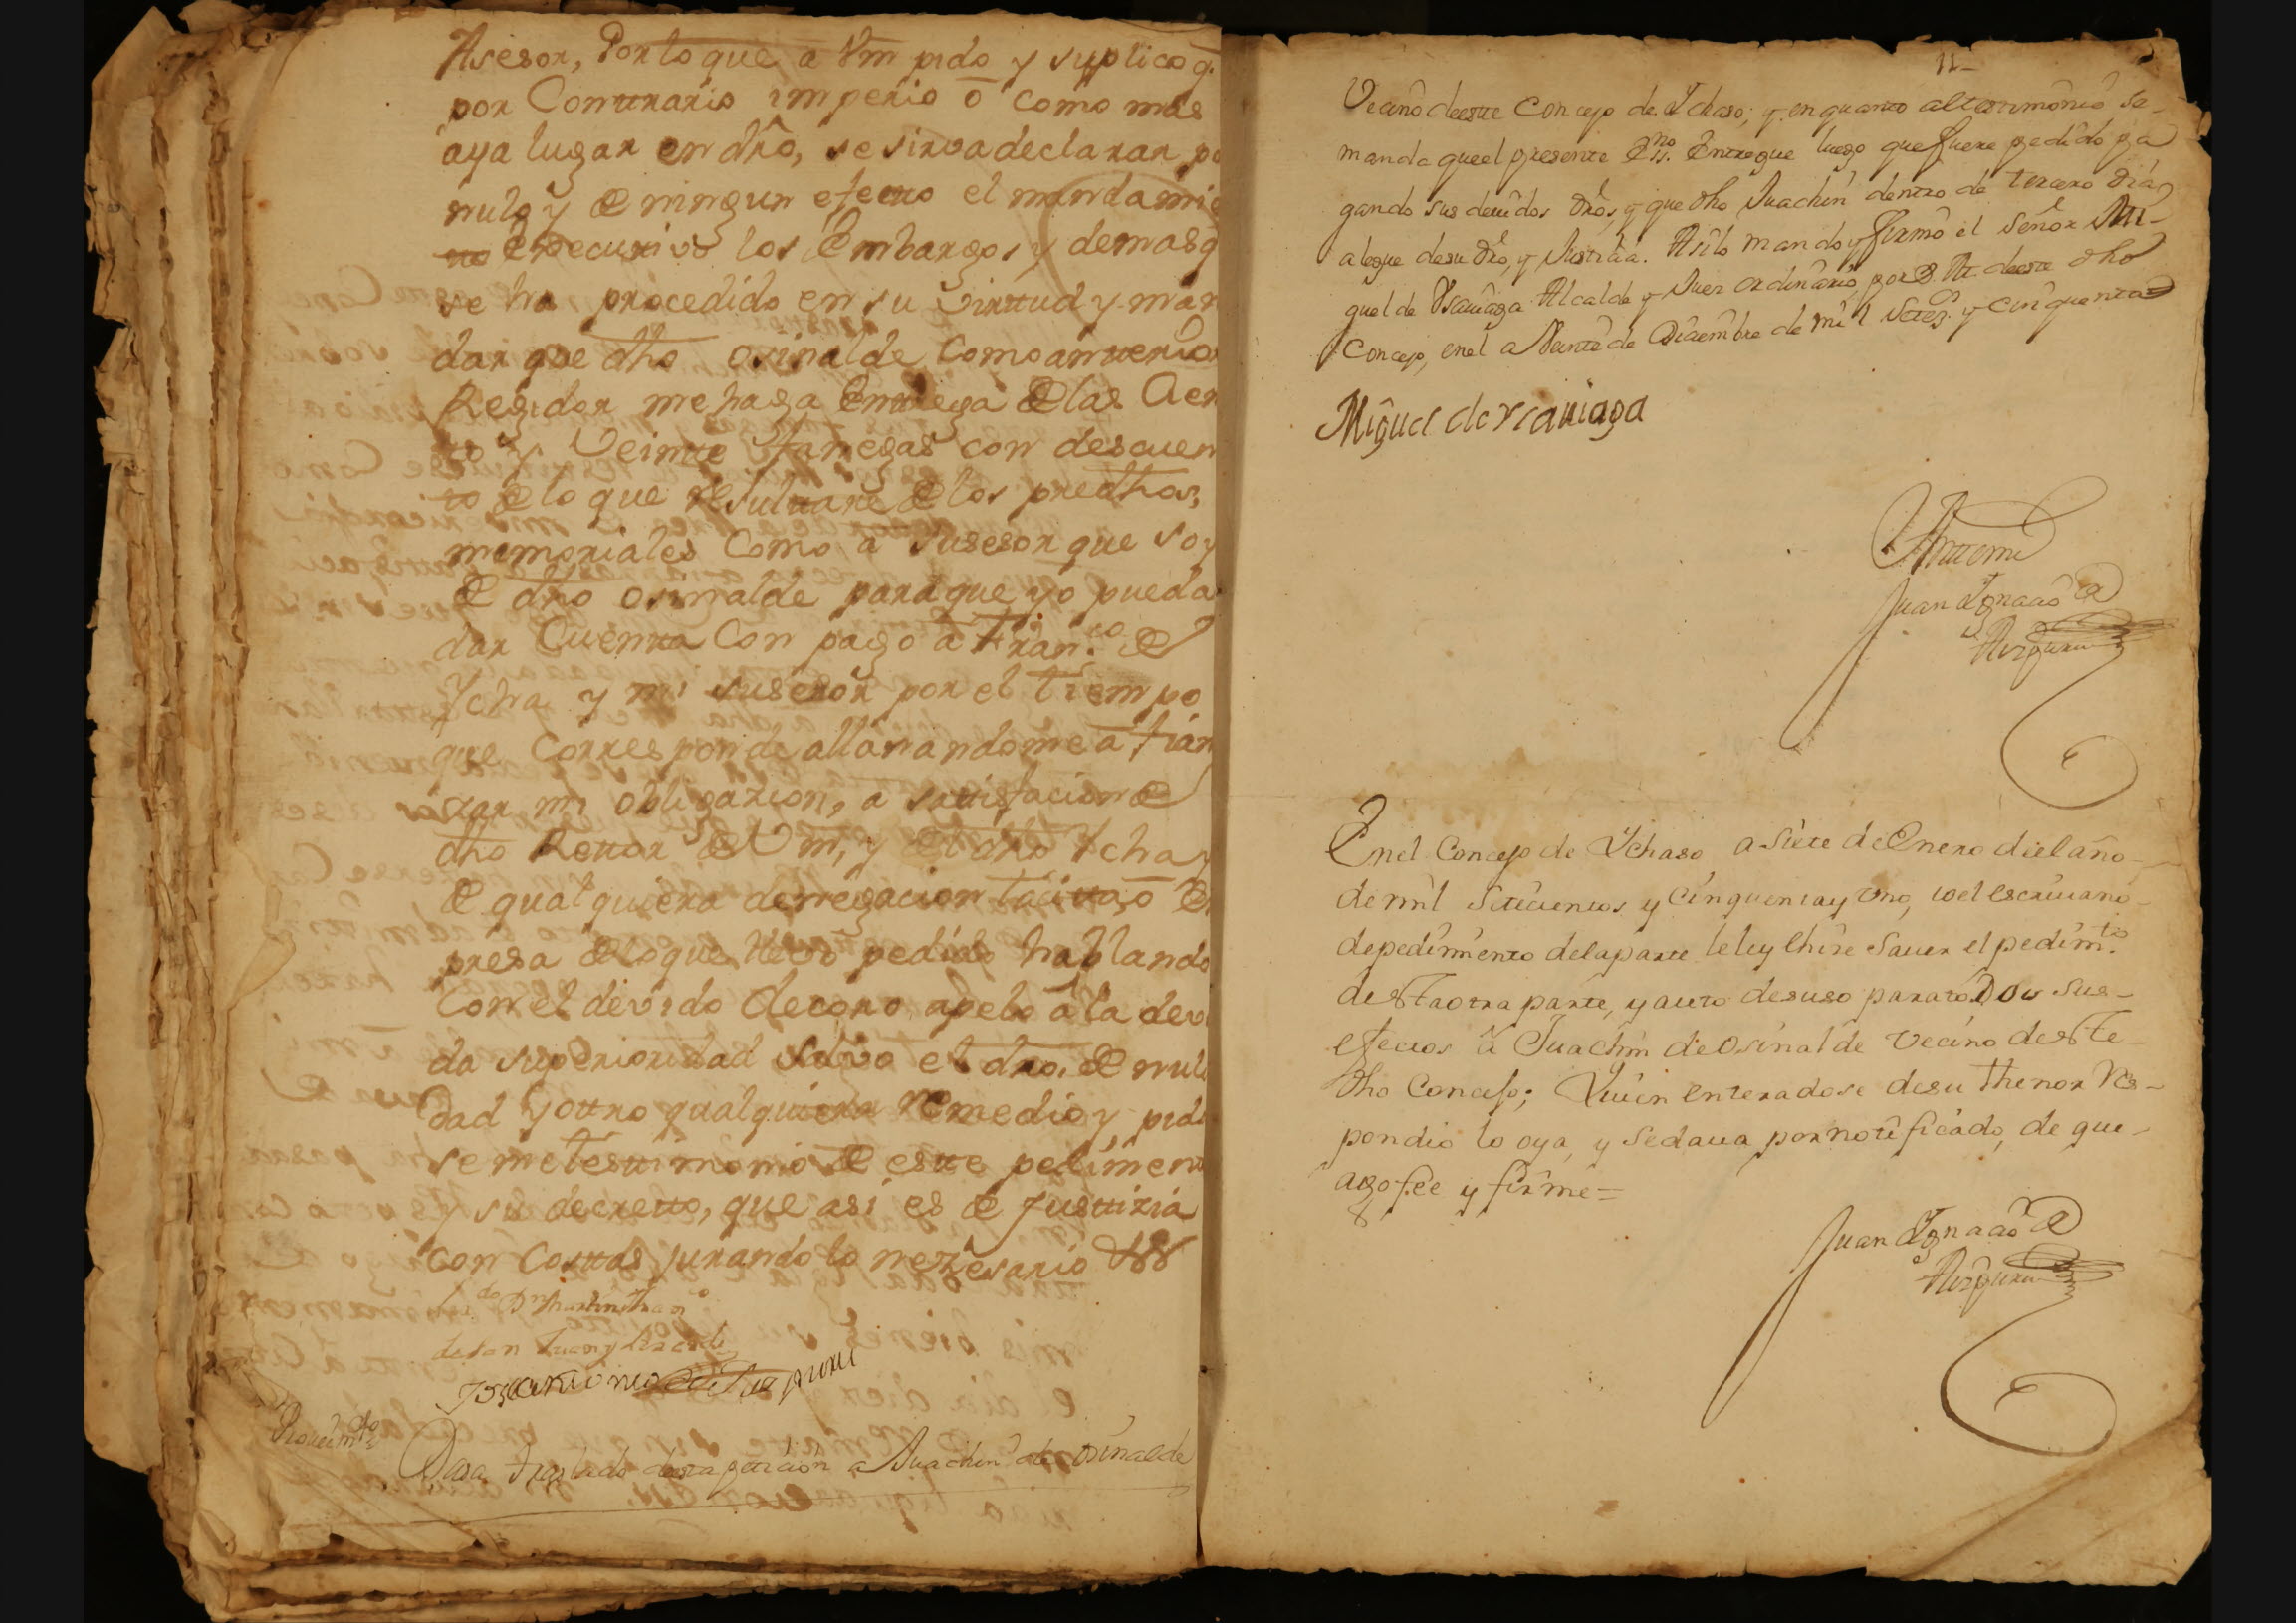 Asesor, Por lo que a Vm pido y suplico q.
por Conttrario imperio o como mas
aya lugar en dro, se sirva declarar po
nulo y de ningun efecto el mandamie
to Executivo los Embargos y demas q
se ha procedido en su virttud y man
dar que dho osinalde como antterior
Regidor me haga Entrega de las Cien
to y Veintte fanegas con descuen
to de lo que resulttare de los predhos,
memoriales Como a susesor que soy
de dho osinalde para que yo pueda
dar Cuentta Con pago a Fran.co de
Ycha y mi susesor por el tiempo
que Corresponde allanandome a fian
zar mi obligazion, a sattisfacion de
dho Rettor de Vm, y del dho Ycha y
de qualquiera denegacion tacitta, o Ex
presa de lo que llevo pedido hablando
con el devido decoro apelo a la devi
da superioridad salvo el dro. de nuli
dad y ottro qualquiera Remedio y pido
se me de testtimonio de estte pedimentt
y su decretto, que asi es de Justtizia
con Costtas jurando lo nezesario &a
Liz.do Dn Martin Fran.co
de San Juan y
Joseantonio de
Proveim.to
Dara traslado desta peticion a Juachin de osinalde
11
Vecino deeste Concejo de Ychaso; y en quanto al testimonio se
manda que el presente Essno. Entregue luego que fuere pedido pa
gando sus devidos dros, y que dho Juachin dentro de tercero dia
alegue de su dro, y Justicia. Asi lo mando y firmo el Señor Mi-
guel de Vsauiaga Alcalde y Juez ordinario, por S. M. deeste dho
Concejo, en el a Veinte de Diciembre de mil Setez.s y Cinquenta
Miguel de Vsauiaga
Antemi
Juan Ygnacio de
Aizpuru
En el Concejo de Ychaso a Siete de Enero del año
de mil Setecientos y Cinquenta y Uno, io el escriuano
de pedimiento de la parte leley e hize Sauer el pedim.to
de Sta otra parte, y auto de suso para todos sus
efectos a Juachin de Osinalde Vecino de Ste
dho Concejo; Quien enteradose de su thenor Res-
pondio lo oya, y se daua por notificado, de que
ago fee y firme=
Juan Ygnacio de
Aizpuru